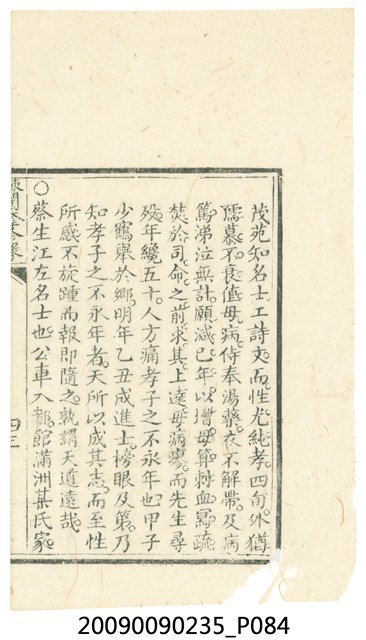 茂苑知名士工詩文而性尤純孝四旬外猶
孺慕不衰值母病侍奉湯藥衣不解帶及病
篤涕泣無計願減己年以增母算刺血寫疏
焚於司命之前求其上達母病瘳而先生尋
歿年纔五十人方痛孝子之不永年也甲子
少鶴舉於鄉明年乙丑成進士榜眼及第乃
知孝子之不永年者天所以成其志而至性
所感不旋踵而報即隨之孰謂天道遠哉
○蔡生江左名士也公車入都館滿洲某氏家
四三
20090090235_P084